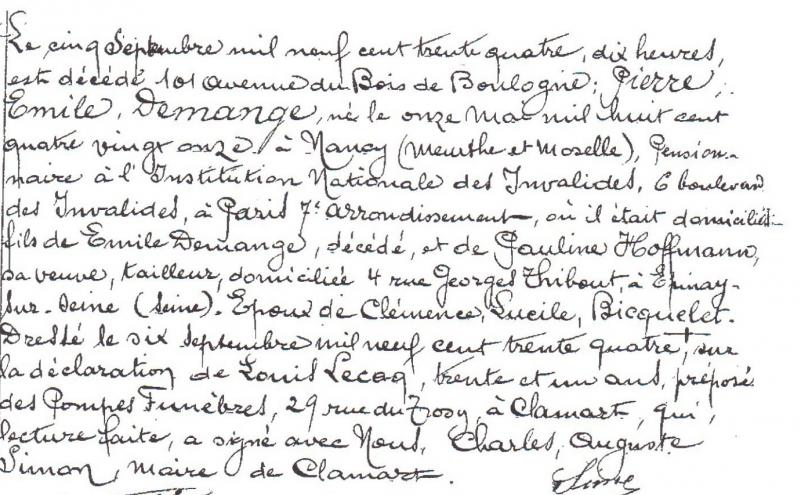 Le cinq Septembre mil neuf cent trente quatre, dix heures,
est décédé 101 avenue du Bois de Boulogne; Pierre,
Emile, Demange, né le onze Mai mil huit cent
quatre vingt onze à Nancy (Meurthe et Moselle), Pension-
naire à l'Institution Nationale des Invalides, 6 boulevard
des Invalides, à Paris 7e arrondissement, où il était domicilié:
fils de Emile Demange, décédé, et de Pauline Hoffmann,
sa veuve, tailleur, domiciliée 4 rue Georges Thibout, à Epinay-
sur-Seine (Seine). Epoux de Clémence, Lucile, Bicquelet.
Dressé le six Septembre mil neuf cent trente quatre, sur
la déclaration de Louis Lecoq, trente et un ans, préposé
des Pompes Funèbres, 29 rue du Trosy, à Clamart, qui,
lecture faite, a signé avec Nous, Charles, Auguste
Simon, Maire de Clamart.